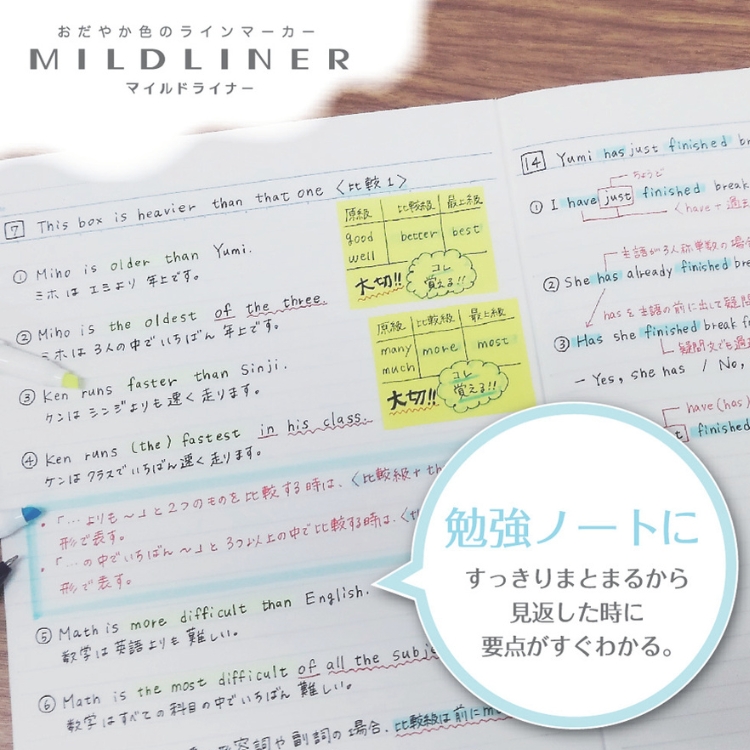 おだやか色のラインマーカー
MILDLINER
マイルドライナー
7 This box is heavier than that one 〈比較1〉
① Miho is older than Yumi.
ミホは エミより 年上です。
② Miho is the oldest of the three.
ミホは 3人の中でいちばん 年上です。
③ Ken runs faster than Sinji.
ケンは シンジよりも 速く 走ります。
④ Ken runs (the) fastest in his class.
ケンは クラスでいちばん 速く 走ります。
・「…よりも〜」と2つのものを比較する時は、〈比較級+th
形で表す。
・「…の中でいちばん〜」と3つ以上の中で比較する時は、
形で表す。
⑤ Math is more difficult than English.
数学は 英語よりも 難しい。
⑥ Math is the most difficult of all the subje
数学は すべての 科目の 中で いちばん 難しい。
容詞や副詞の場合、比較級は前にm
原級 比較級 最上級
good better best
well
大切!! コレ
覚える!!
原級 比較級 最上級
many more most
much
大切!! コレ
覚える!!
14 Yumi has just finished br
ちょうど
① I have just finished break
〈have+過去
主語が3人称単数の場合
② She has already finished bre
hasを主語の前に出して疑問
③ Has she finished break f
疑問文でも過
− Yes, she has / No,
have(has)
t finished
勉強ノートに
すっきりまとまるから
見返した時に
要点がすぐわかる。